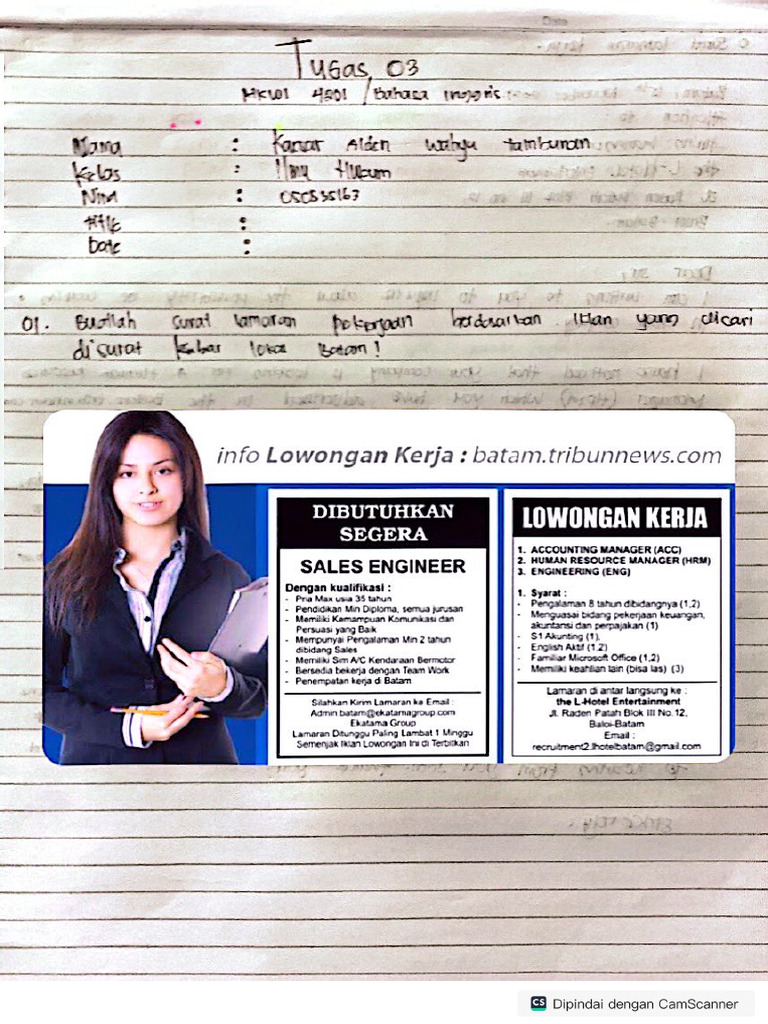 Tugas 03
MKWI 4201 / Bahasa Inggris
Nama :
Kelas : Ilmu Hukum
Nim : 050535163
title :
Date :
01. Buatlah surat lamaran pekerjaan berdasarkan Iklan yang dicari
di surat kabar lokal Batam!
info Lowongan Kerja : batam.tribunnews.com
DIBUTUHKAN
SEGERA
SALES ENGINEER
Dengan kualifikasi :
- Pria Max usia 35 tahun
- Pendidikan Min Diploma, semua jurusan
- Memiliki Kemampuan Komunikasi dan
Persuasi yang Baik
- Mempunyai Pengalaman Min 2 tahun
dibidang Sales
- Memiliki Sim A/C Kendaraan Bermotor
- Bersedia bekerja dengan Team Work
- Penempatan kerja di Batam
Silahkan Kirim Lamaran ke Email :
Admin.batam@ekatamagroup.com
Ekatama Group
Lamaran Ditunggu Paling Lambat 1 Minggu
Semenjak Iklan Lowongan Ini di Terbitkan
LOWONGAN KERJA
1. ACCOUNTING MANAGER (ACC)
2. HUMAN RESOURCE MANAGER (HRM)
3. ENGINEERING (ENG)
1. Syarat :
- Pengalaman 8 tahun dibidangnya (1,2)
- Menguasai bidang pekerjaan keuangan,
akuntansi dan perpajakan (1)
- S1 Akunting (1),
- English Aktif (1,2)
- Familiar Microsoft Office (1,2)
- Memiliki keahlian lain (bisa las) (3)
Lamaran di antar langsung ke :
the L-Hotel Entertainment
Jl. Raden Patah Blok III No.12,
Baloi-Batam
Email :
recruitment2.lhotelbatam@gmail.com
CS Dipindai dengan CamScanner